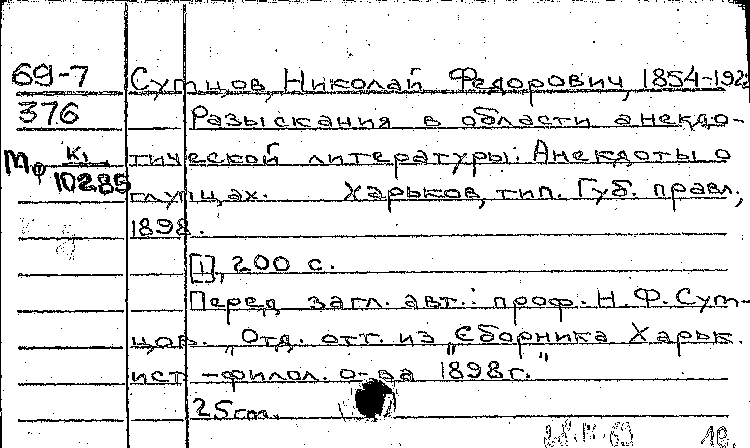 69-7 Сумцов, Николай Федорович, 1854-192
376 Разыскания в области анекдо-
Мф К1 10285 тической литературы: Анекдоты о
глупцах. Харьков, тип. Губ. правл.,
1898.
[1], 200 с.
Перед загл. авт.: проф. Н. Ф. Сум-
цов. „Отд. отт. из „Сборника Харьк.
ист.-филол. о-ва 1898 г."
25 cm.